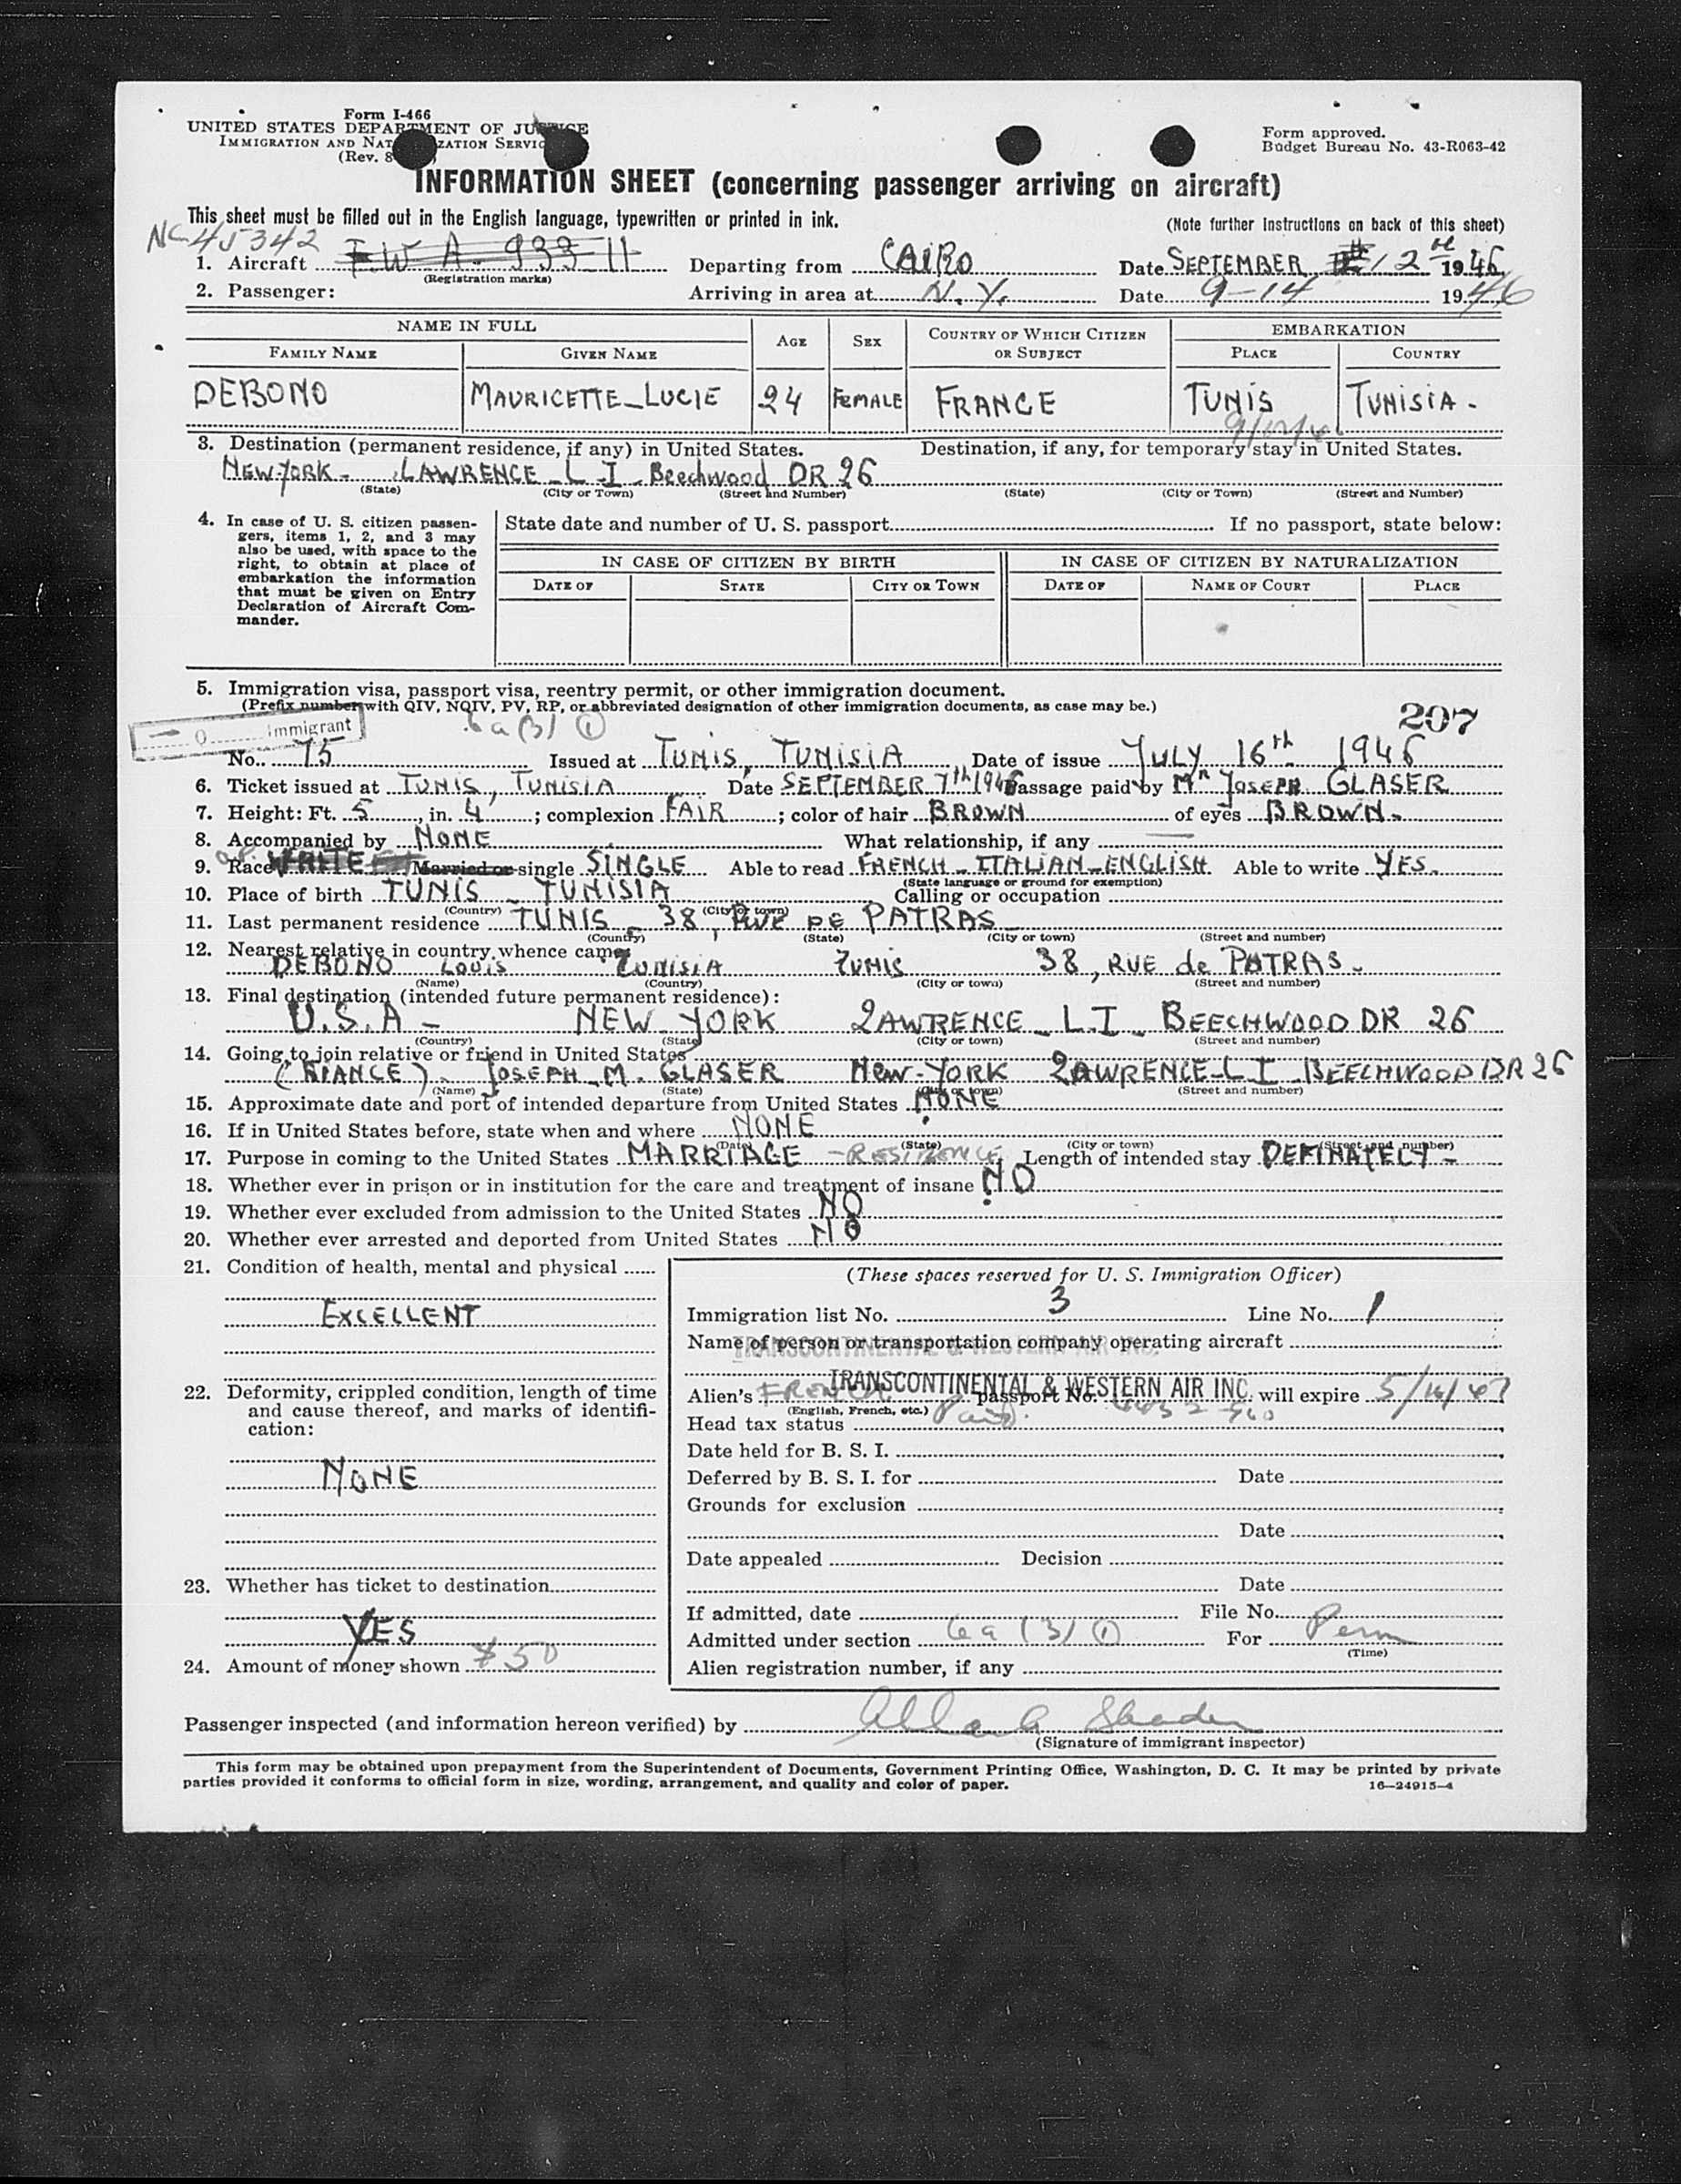 Form I-466
UNITED STATES DEPARTMENT OF JUSTICE
IMMIGRATION AND NATURALIZATION SERVICE
(Rev. 8
Form approved.
Budget Bureau No. 43-R063-42
INFORMATION SHEET (concerning passenger arriving on aircraft)
This sheet must be filled out in the English language, typewritten or printed in ink.
(Note further instructions on back of this sheet)
NC 45342
1. Aircraft T.W.A. 933 11 Departing from CAIRO Date SEPTEMBER 12th 1946
(Registration marks)
2. Passenger: Arriving in area at N.Y. Date 9-14 1946
NAME IN FULL
AGE SEX COUNTRY OF WHICH CITIZEN OR SUBJECT EMBARKATION
FAMILY NAME GIVEN NAME PLACE COUNTRY
DEBONO MAURICETTE_LUCIE 24 FEMALE FRANCE TUNIS TUNISIA -
3. Destination (permanent residence, if any) in United States. Destination, if any, for temporary stay in United States.
NEW-YORK - LAWRENCE - L I - Beechwood DR 26
(State) (City or Town) (Street and Number) (State) (City or Town) (Street and Number)
4. In case of U. S. citizen passengers, items 1, 2, and 3 may also be used, with space to the right, to obtain at place of embarkation the information that must be given on Entry Declaration of Aircraft Commander.
State date and number of U. S. passport If no passport, state below:
IN CASE OF CITIZEN BY BIRTH IN CASE OF CITIZEN BY NATURALIZATION
DATE OF STATE CITY OR TOWN DATE OF NAME OF COURT PLACE
5. Immigration visa, passport visa, reentry permit, or other immigration document.
(Prefix number with QIV, NQIV, PV, RP, or abbreviated designation of other immigration documents, as case may be.)
Immigrant
6a (3) (1)
207
No. 75 Issued at TUNIS, TUNISIA Date of issue JULY 16th 1946
6. Ticket issued at TUNIS, TUNISIA Date SEPTEMBER 7th 1946 Passage paid by Mr JOSEPH GLASER
7. Height: Ft. 5, in. 4; complexion FAIR; color of hair BROWN of eyes BROWN.
8. Accompanied by NONE What relationship, if any
9. Race WHITE Married or single SINGLE Able to read FRENCH - ITALIAN - ENGLISH Able to write YES.
(State language or ground for exemption)
10. Place of birth TUNIS - TUNISIA Calling or occupation
(Country) (City or town)
11. Last permanent residence TUNIS - 38, RUE DE PATRAS
(Country) (State) (City or town) (Street and number)
12. Nearest relative in country whence came
DEBONO LOUIS TUNISIA TUNIS 38, RUE de PATRAS.
(Name) (Country) (City or town) (Street and number)
13. Final destination (intended future permanent residence):
U.S.A - NEW YORK LAWRENCE - L.I - BEECHWOOD DR 26
(Country) (State) (City or town) (Street and number)
14. Going to join relative or friend in United States
(FIANCE) - JOSEPH - M. GLASER New-YORK LAWRENCE - L I - BEECHWOOD DR 26
(Name) (State) (City or town) (Street and number)
15. Approximate date and port of intended departure from United States NONE
16. If in United States before, state when and where NONE
(Date) (State) (City or town) (Street and number)
17. Purpose in coming to the United States MARRIAGE - RESIDENCE Length of intended stay DEFINATELY -
18. Whether ever in prison or in institution for the care and treatment of insane NO
19. Whether ever excluded from admission to the United States NO
20. Whether ever arrested and deported from United States NO
21. Condition of health, mental and physical
EXCELLENT
22. Deformity, crippled condition, length of time and cause thereof, and marks of identification:
NONE
23. Whether has ticket to destination
YES
24. Amount of money shown $50
(These spaces reserved for U. S. Immigration Officer)
Immigration list No. 3 Line No. 1
Name of person or transportation company operating aircraft
TRANSCONTINENTAL & WESTERN AIR INC.
TRANSCONTINENTAL & WESTERN AIR INC.
Alien's FRENCH passport No. will expire 5/16/47
(English, French, etc.)
Head tax status Paid
Date held for B. S. I.
Deferred by B. S. I. for Date
Grounds for exclusion
Date
Date appealed Decision
Date
If admitted, date File No.
Admitted under section 6a (3) (1) For Perm
(Time)
Alien registration number, if any
Passenger inspected (and information hereon verified) by
(Signature of immigrant inspector)
This form may be obtained upon prepayment from the Superintendent of Documents, Government Printing Office, Washington, D. C. It may be printed by private
parties provided it conforms to official form in size, wording, arrangement, and quality and color of paper.
16—24915-4